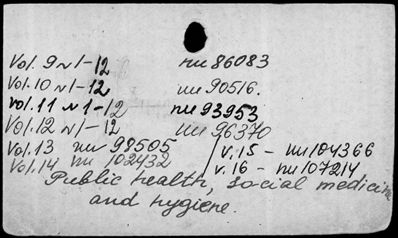 Vol. 9 N1-12 nu 86083
Vol. 10 N1-12 nu 90516.
Vol. 11 N1-12 nu 93953
Vol. 12 N1-12 nu 96370
Vol. 13 nu 98505 v. 15 - nu 104366
Vol. 14 nu 102432 v. 16 - nu 107214
Public health, social medicine
and hygiene.